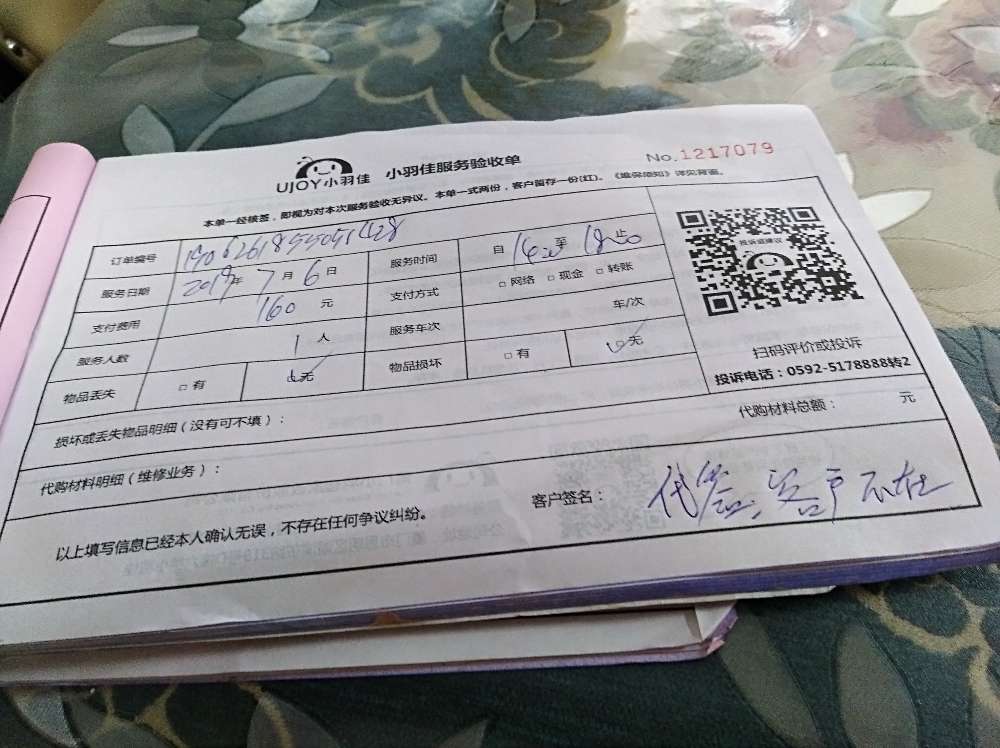 UJOY小羽佳 小羽佳服务验收单 No.1217079
本单一经核签，即视为对本次服务验收无异议。本单一式两份，客户留存一份(红)。《维保须知》详见背面。
订单编号 服务时间 自 至 18:00 止
服务日期 2019年 7月 6日 支付方式 □网络 □现金 □转账
支付费用 160 元 服务车次 车/次
服务人数 1 人 物品损坏 □有 □✓无
物品丢失 □有 □✓无
投诉或建议
扫码评价或投诉
投诉电话：0592-5178888转2
损坏或丢失物品明细（没有可不填）：
代购材料明细（维修业务）： 代购材料总额： 元
以上填写信息已经本人确认无误，不存在任何争议纠纷。 客户签名： 代签，客户不在